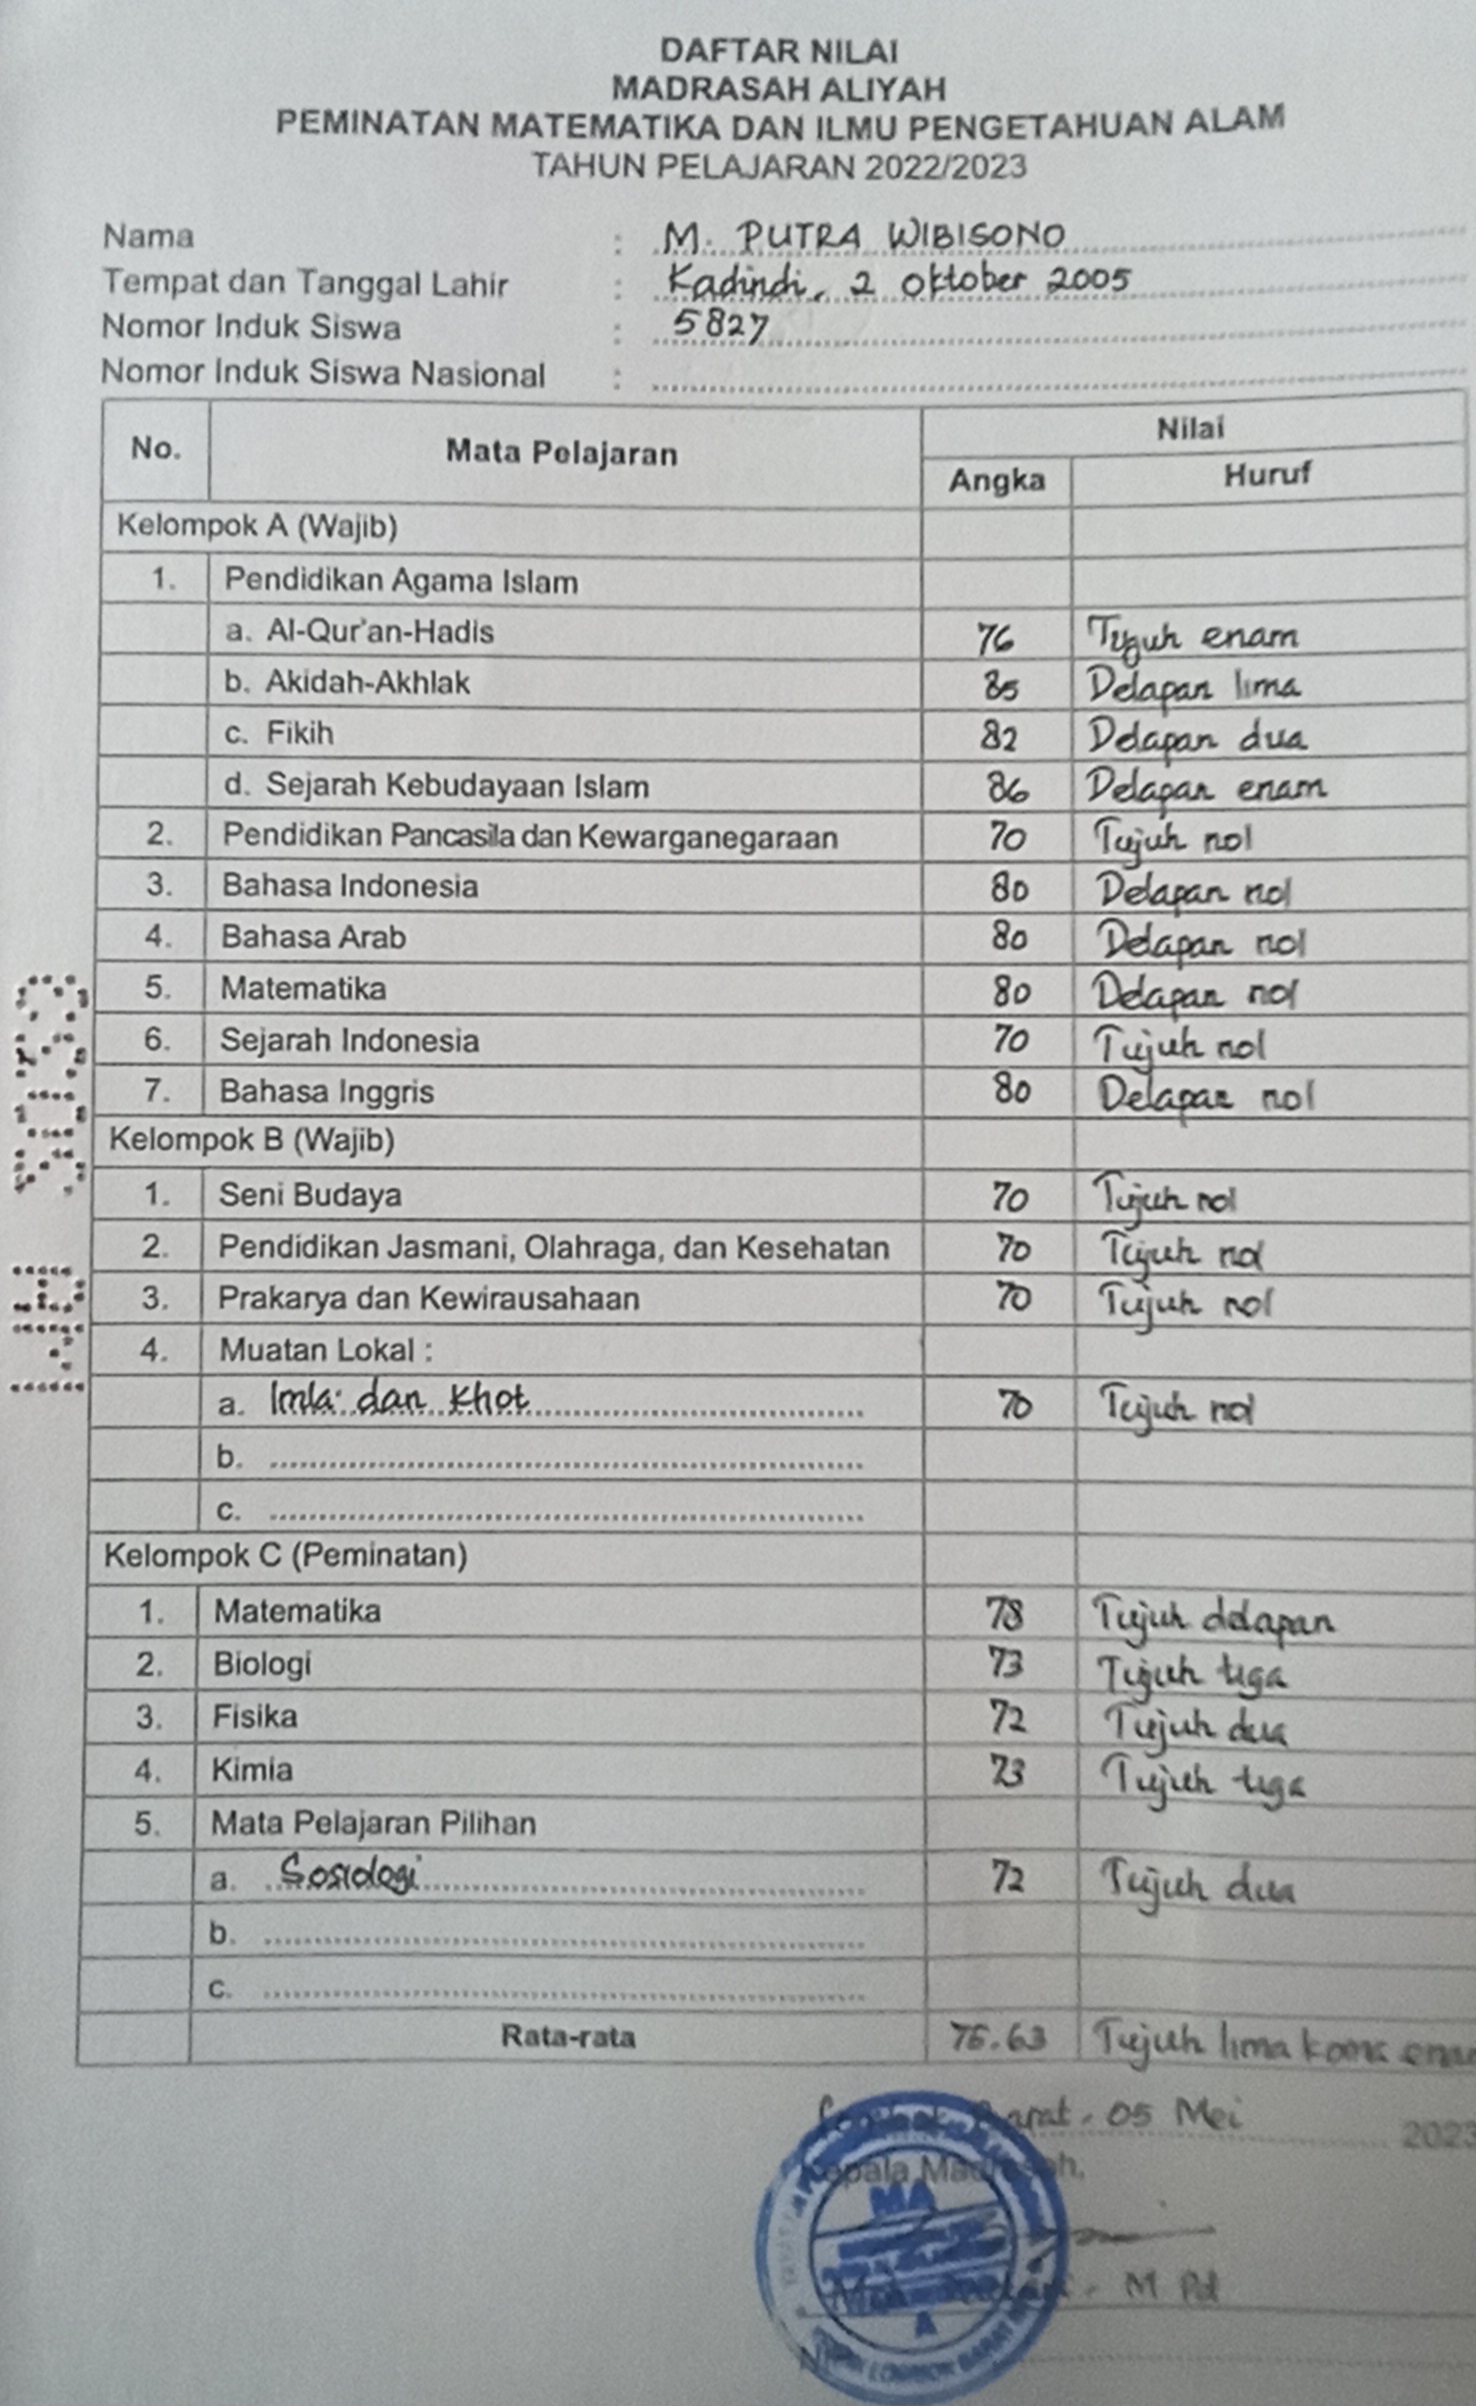 DAFTAR NILAI
MADRASAH ALIYAH
PEMINATAN MATEMATIKA DAN ILMU PENGETAHUAN ALAM
TAHUN PELAJARAN 2022/2023
Nama : M. PUTRA WIBISONO
Tempat dan Tanggal Lahir : Kadindi, 2 Oktober 2005
Nomor Induk Siswa : 5827
Nomor Induk Siswa Nasional :
No. Mata Pelajaran Nilai
Angka Huruf
Kelompok A (Wajib)
1. Pendidikan Agama Islam
a. Al-Qur'an-Hadis 76 Tujuh enam
b. Akidah-Akhlak 85 Delapan lima
c. Fikih 82 Delapan dua
d. Sejarah Kebudayaan Islam 86 Delapan enam
2. Pendidikan Pancasila dan Kewarganegaraan 70 Tujuh nol
3. Bahasa Indonesia 80 Delapan nol
4. Bahasa Arab 80 Delapan nol
5. Matematika 80 Delapan nol
6. Sejarah Indonesia 70 Tujuh nol
7. Bahasa Inggris 80 Delapan nol
Kelompok B (Wajib)
1. Seni Budaya 70 Tujuh nol
2. Pendidikan Jasmani, Olahraga, dan Kesehatan 70 Tujuh nol
3. Prakarya dan Kewirausahaan 70 Tujuh nol
4. Muatan Lokal :
a. Imla' dan Khot 70 Tujuh nol
b.
c.
Kelompok C (Peminatan)
1. Matematika 78 Tujuh delapan
2. Biologi 73 Tujuh tiga
3. Fisika 72 Tujuh dua
4. Kimia 73 Tujuh tiga
5. Mata Pelajaran Pilihan
a. Sosiologi 72 Tujuh dua
b.
c.
Rata-rata 75.63 Tujuh lima koma
Barat, 05 Mei 2023
Kepala Madrasah,
MA
M Pd
A
LOMBOK BARAT